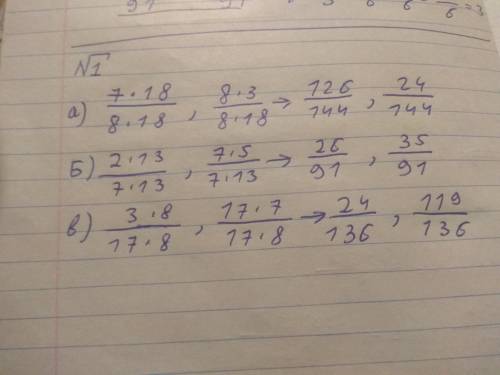 №1
а) 7·18/8·18 , 8·3/8·18 → 126/144 , 24/144
Б) 2·13/7·13 , 7·5/7·13 → 26/91 , 35/91
в) 3·8/17·8 , 17·7/17·8 → 24/136 , 119/136